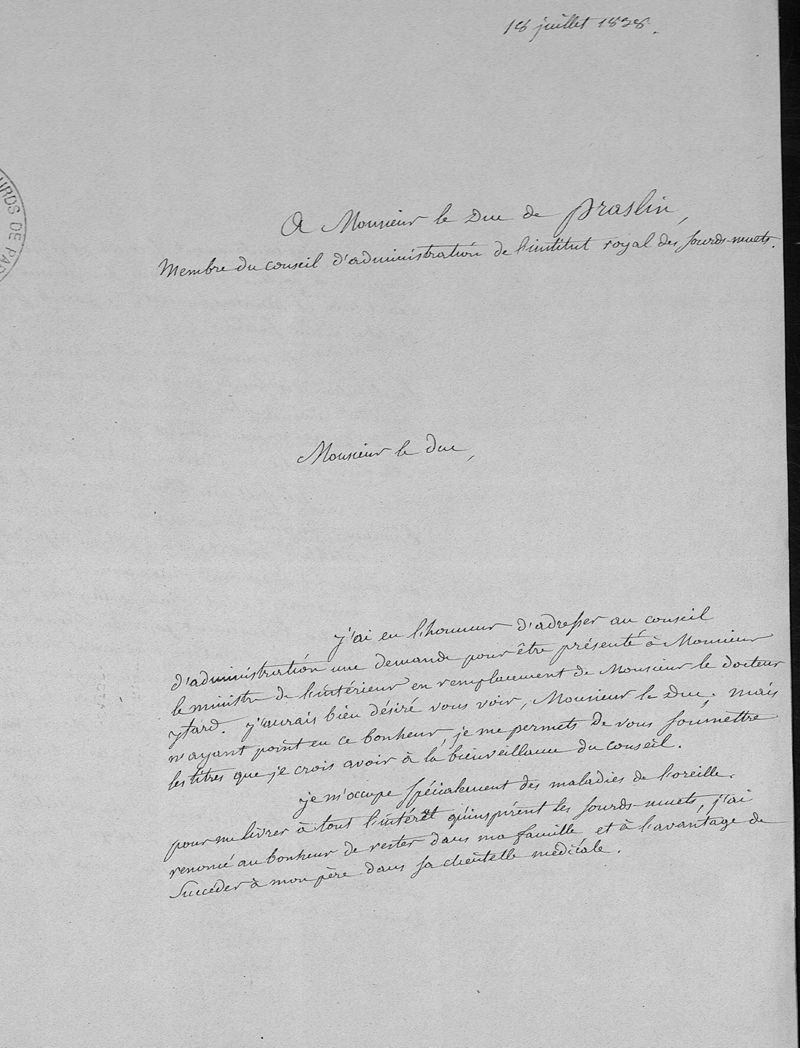 18 juillet 1838.
URDS DE PAR
A Monsieur le Duc de praslin,
Membre du conseil d'administration de l'institut royal des sourds-muets.
Monsieur le Duc,
j'ai eu l'honneur d'adresser au conseil
d'administration une demande pour être présenté à Monsieur
le ministre de l'intérieur en remplacement de Monsieur le docteur
ytard. j'aurais bien désiré vous voir, Monsieur le Duc; mais
n'ayant point eu ce bonheur, je me permets de vous soumettre
les titres que je crois avoir à la bienveillance du conseil.
je m'occupe spécialement des maladies de l'oreille.
pour me livrer à tout l'intérêt qu'inspirent les sourds-muets, j'ai
renoncé au bonheur de rester dans ma famille et à l'avantage de
succéder à mon père dans sa clientelle médicale.